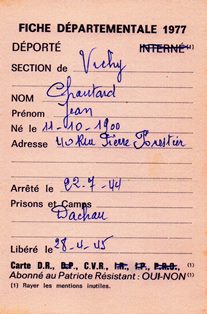 FICHE DÉPARTEMENTALE 1977
DÉPORTÉ INTERNÉ (1)
SECTION de Vichy
NOM Chautard
Prénom Jean
Né le 11-10-1900
Adresse 40 Rue Pierre Forestier
Arrêté le 22-7-44
Prisons et Camps
Dachau
Libéré le 28-4-45
Carte D.R., D.P., C.V.R., I.R., I.P., P.R.O., (1)
Abonné au Patriote Résistant : OUI-NON (1)
(1) Rayer les mentions inutiles.